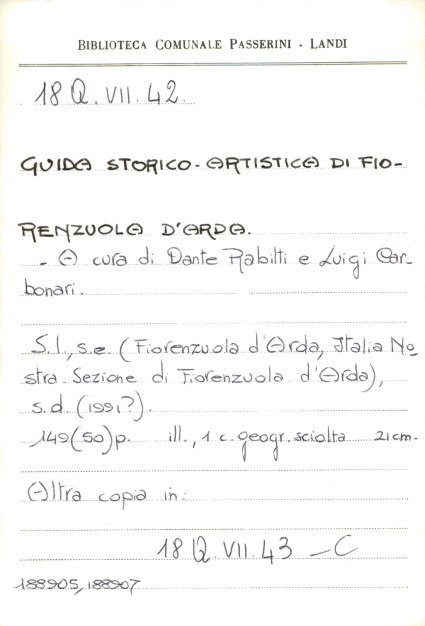 BIBLIOTECA COMUNALE PASSERINI - LANDI
18 Q. VII. 42.
GUIDA STORICO-ARTISTICA DI FIO-
RENZUOLA D'ARDA.
- A cura di Dante Rabitti e Luigi Car-
bonari.
S.l., s.e. (Fiorenzuola d'Arda, Italia No-
stra. Sezione di Fiorenzuola d'Arda),
s.d. (1991?).
149(50)p. ill., 1 c. geogr. sciolta 21cm.
Altra copia in:
18 Q. VII. 43 - C
188905, 188907